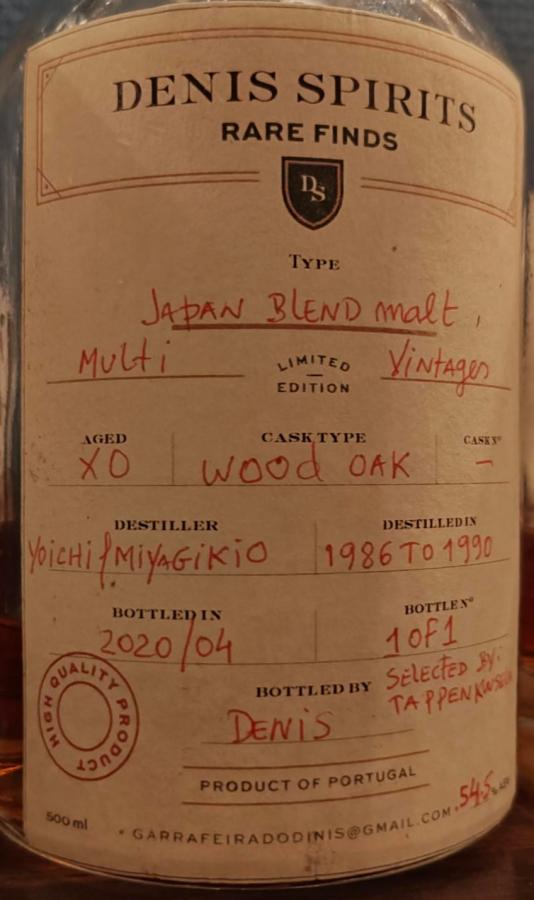 DENIS SPIRITS
RARE FINDS
DS
TYPE
JAPAN BLEND malt,
Multi LIMITED — EDITION Vintages
AGED CASK TYPE CASK Nº
XO wood OAK –
DESTILLER DESTILLED IN
YOICHI / MIYAGIKIO 1986 TO 1990
BOTTLED IN BOTTLE Nº
2020/04 1 OF 1
HIGH QUALITY PRODUCT
BOTTLED BY SELECTED BY:
DENIS
PRODUCT OF PORTUGAL
54.5
500ml * GARRAFEIRADODINIS@GMAIL.COM